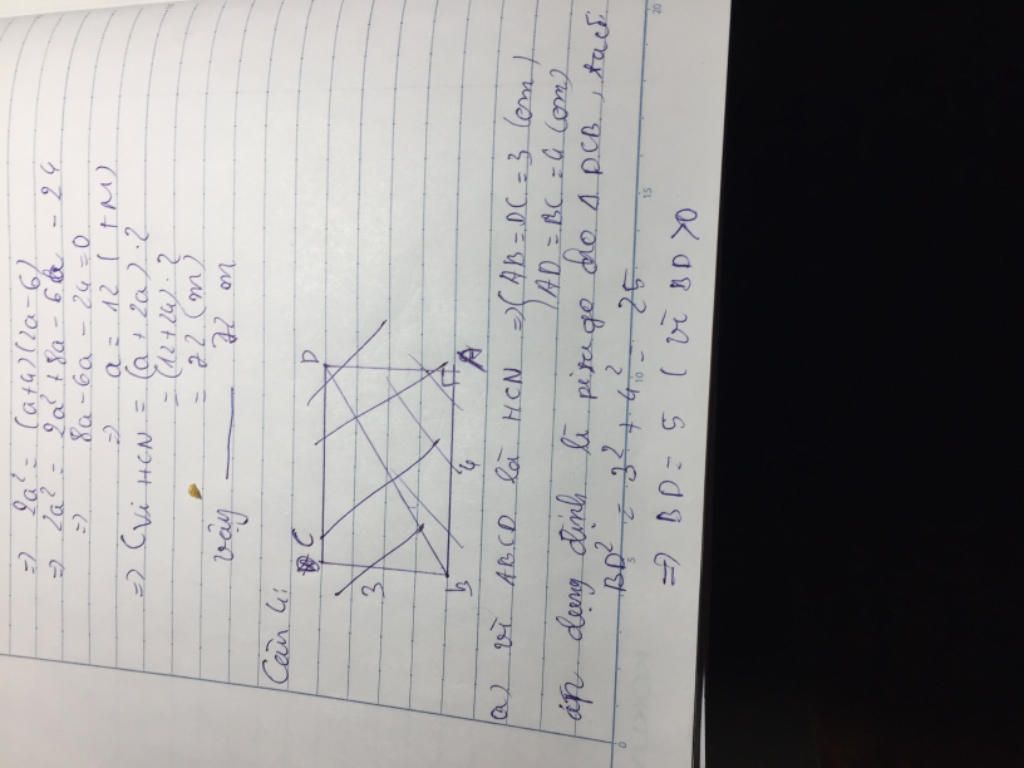 => 2a² = (a+4)(2a-6)
=> 2a² = 2a² + 8a - 6a - 24
=> 8a - 6a - 24 = 0
=> a = 12 (TM)
=> Cvi HCN = (a + 2a).2
= (12+24):2
= 72 (m)
vậy 72 m
Câu 4:
C D
3
B 4 A
a) vì ABCD là HCN => { AB = DC = 3 (cm)
AD = BC = 4 (cm)
áp dụng định lí pitago cho Δ DCB, ta có
BD² = 3² + 4² = 25
=> BD = 5 (vì BD > 0
5 10 15 20
0